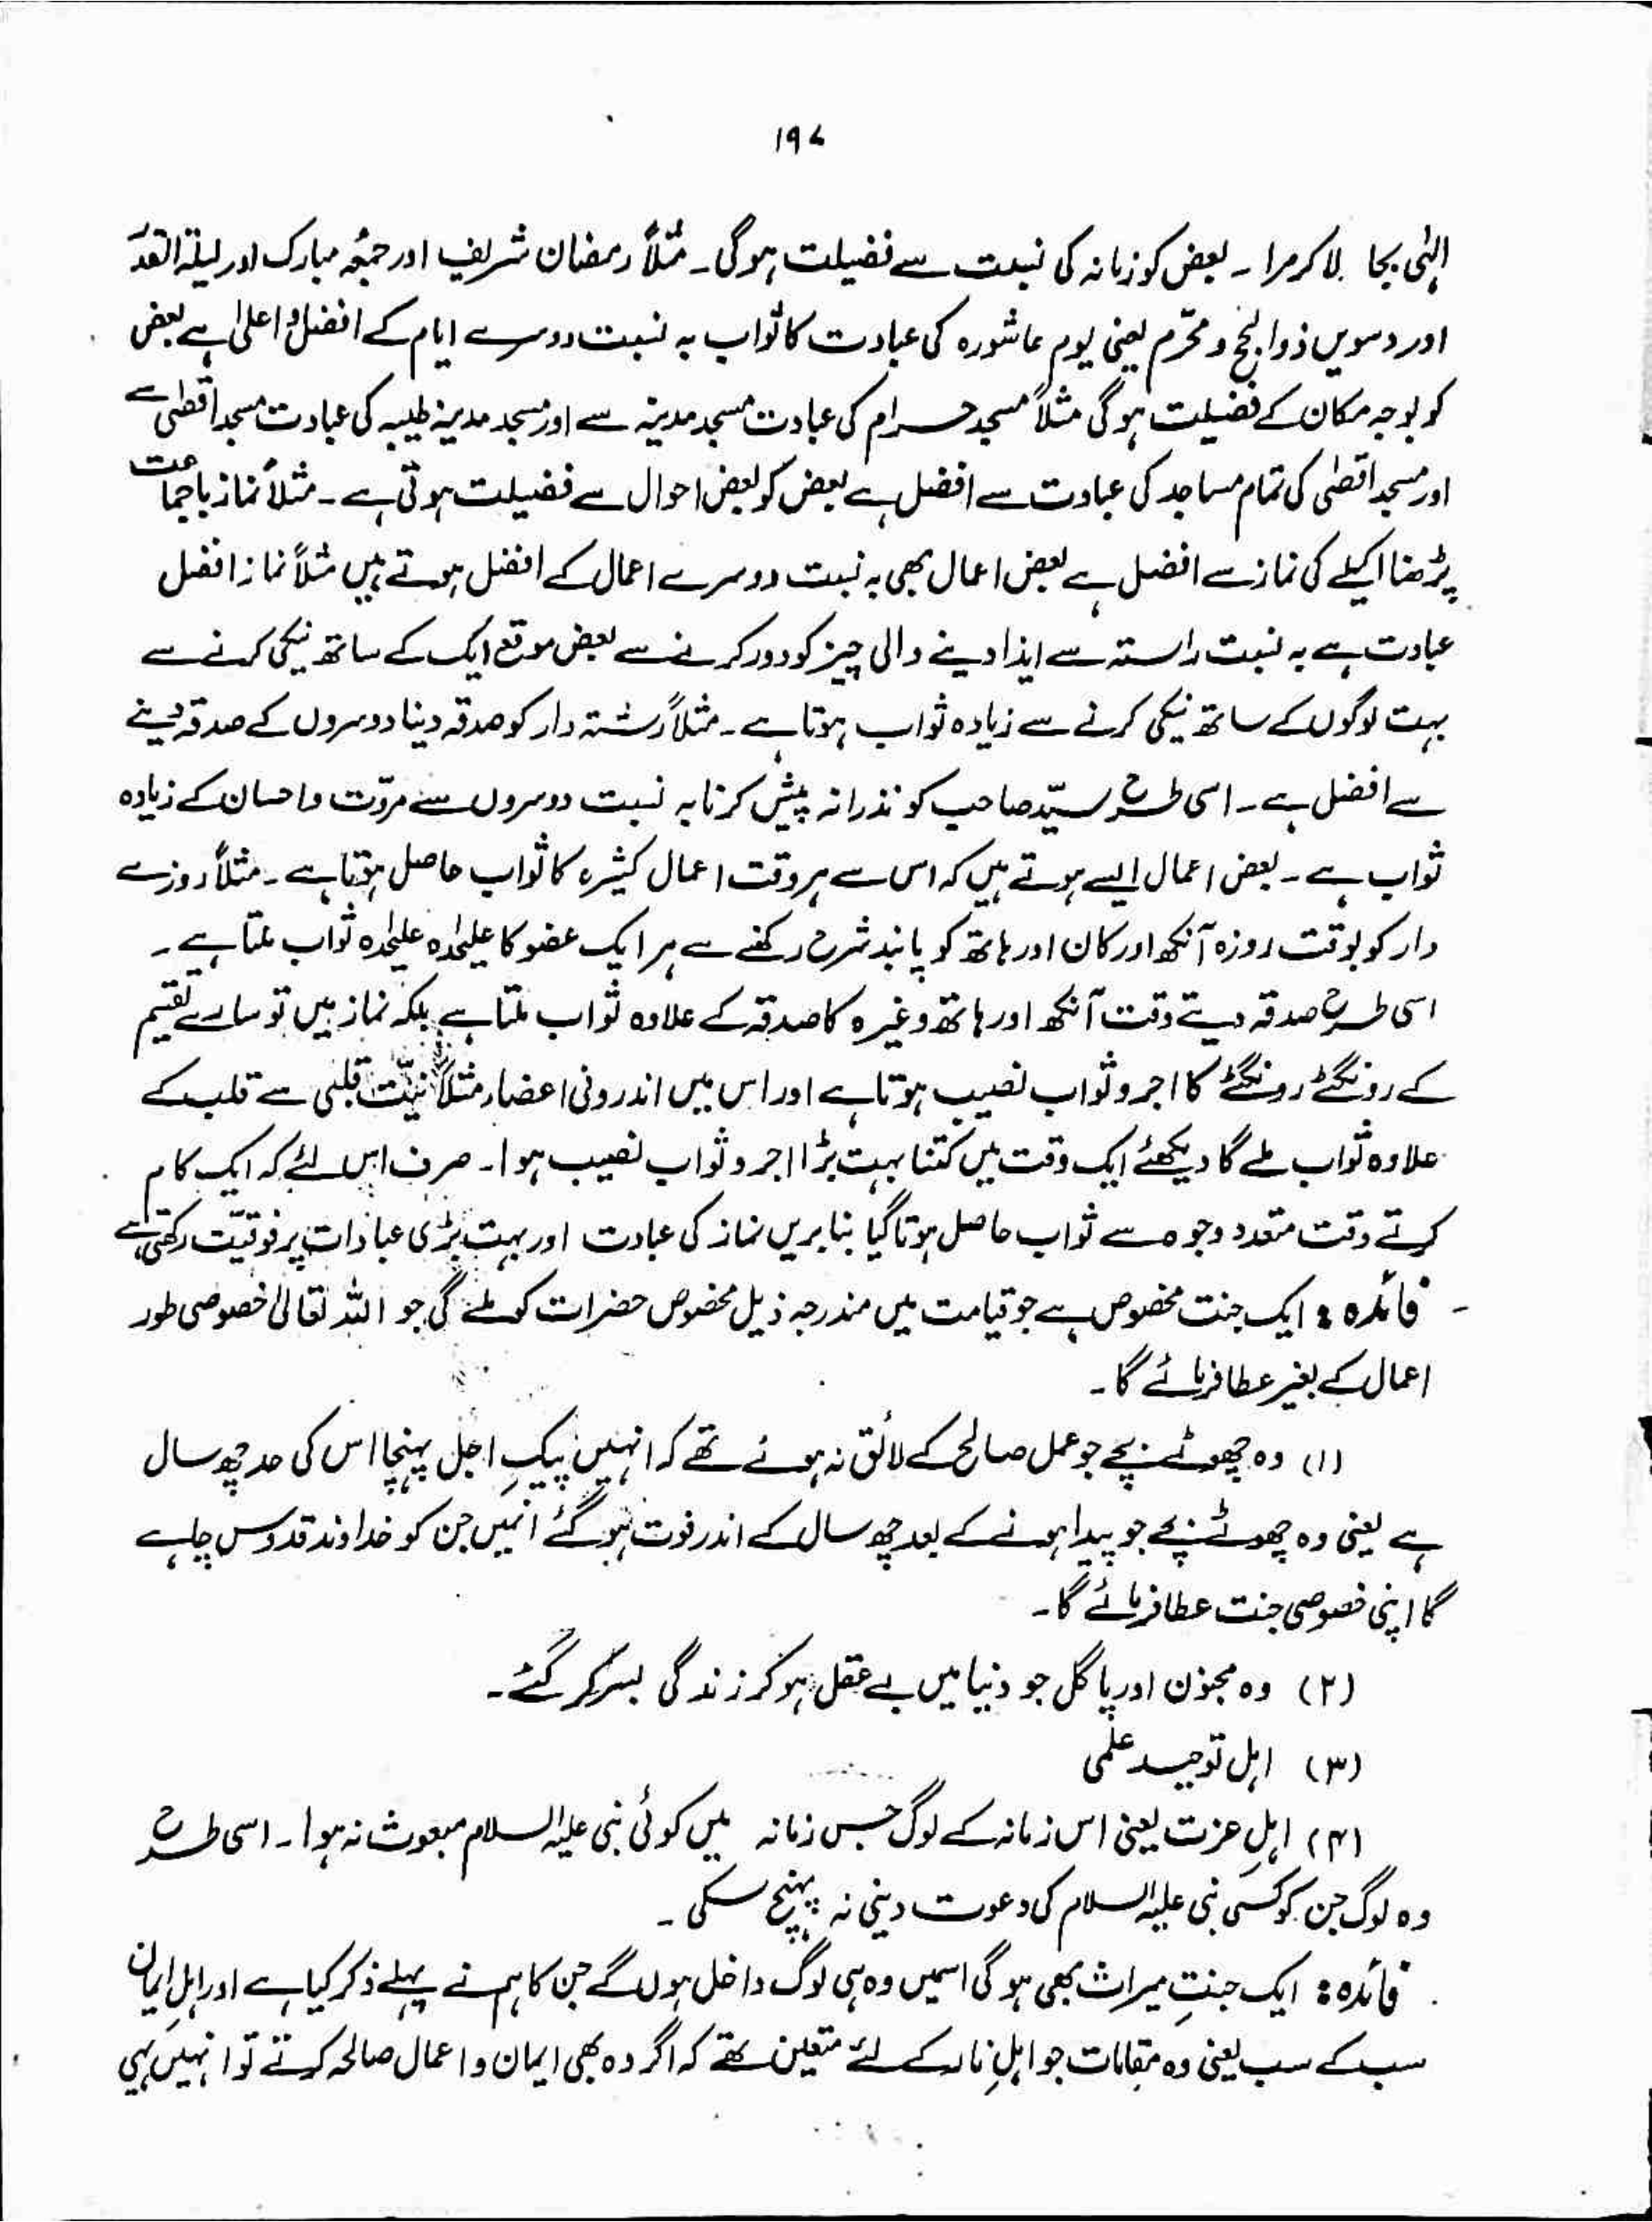 ۱۹۷
الٰہی بجا لا کر مرا ۔ بعض کو زمانہ کی نسبت سے فضیلت ہوگی ۔ مثلاً رمضان شریف اور جمعہ مبارک اور لیلۃ القدر
اور دسویں ذوالحج و محرّم یعنی یوم عاشورہ کی عبادت کا ثواب بہ نسبت دوسرے ایام کے افضل و اعلیٰ ہے بعض
کو بوجہ مکان کے فضیلت ہوگی مثلاً مسجد حرام کی عبادت مسجد مدینہ سے اور مسجد مدینہ طیبہ کی عبادت مسجد اقصٰی سے
اور مسجد اقصٰی کی تمام مساجد کی عبادت سے افضل ہے بعض کو بعض احوال سے فضیلت ہوتی ہے ۔ مثلاً نماز باجماعت
پڑھنا اکیلے کی نماز سے افضل ہے بعض اعمال بھی بہ نسبت دوسرے اعمال کے افضل ہوتے ہیں مثلاً نماز افضل
عبادت ہے بہ نسبت راستہ سے ایذا دینے والی چیز کو دور کرنے سے بعض موقع ایک کے ساتھ نیکی کرنے سے
بہت لوگوں کے ساتھ نیکی کرنے سے زیادہ ثواب ہوتا ہے ۔ مثلاً رشتہ دار کو صدقہ دینا دوسروں کے صدقہ دینے
سے افضل ہے ۔ اسی طرح سیّد صاحب کو نذرانہ پیش کرنا بہ نسبت دوسروں سے مروّت و احسان کے زیادہ
ثواب ہے ۔ بعض اعمال ایسے ہوتے ہیں کہ اس سے ہر وقت اعمال کثیرہ کا ثواب حاصل ہوتا ہے ۔ مثلاً روزے
دار کو بوقت روزہ آنکھ اور کان اور ہاتھ کو پابند شرع رکھنے سے ہر ایک عضو کا علیحدہ علیحدہ ثواب ملتا ہے ۔
اسی طرح صدقہ دیتے وقت آنکھ اور ہاتھ وغیرہ کا صدقہ کے علاوہ ثواب ملتا ہے بلکہ نماز میں تو سارے تقیم
کے رونگٹے رونگٹے کا اجر و ثواب نصیب ہوتا ہے اور اس میں اندرونی اعضاء مثلاً نیّت قلبی سے قلب کے
علاوہ ثواب ملے گا دیکھئے ایک وقت میں کتنا بہت بڑا اجر و ثواب نصیب ہوا ۔ صرف اس لئے کہ ایک کام
کرتے وقت متعدد وجوہ سے ثواب حاصل ہوتا گیا بنابریں نماز کی عبادت اور بہت بڑی عبادات پر فوقیّت رکھتی ہے
فائدہ : ایک جنت مخصوص ہے جو قیامت میں مندرجہ ذیل مخصوص حضرات کو ملے گی جو اللہ تعالیٰ خصوصی طور
اعمال کے بغیر عطا فرمائے گا ۔
(۱) وہ چھوٹے بچے جو عمل صالح کے لائق نہ ہوئے تھے کہ انہیں پیکِ اجل پہنچا اس کی حد چھ سال
ہے یعنی وہ چھوٹے بچے جو پیدا ہونے کے بعد چھ سال کے اندر فوت ہو گئے انہیں جن کو خداوند قدوس چاہے
گا اپنی خصوصی جنت عطا فرمائے گا ۔
(۲) وہ مجنون اور پاگل جو دنیا میں بے عقل ہو کر زندگی بسر کر گئے ۔
(۳) اہل توحید علمی
(۴) اہلِ عزت یعنی اس زمانہ کے لوگ جس زمانہ میں کوئی نبی علیہ السلام مبعوث نہ ہوا ۔ اسی طرح
وہ لوگ جن کو کسی نبی علیہ السلام کی دعوت دینی نہ پہنچ سکی ۔
فائدہ : ایک جنتِ میراث بھی ہوگی اسمیں وہ ہی لوگ داخل ہوں گے جن کا ہم نے پہلے ذکر کیا ہے اور اہلِ ایمان
سب کے سب یعنی وہ مقامات جو اہلِ نار کے لئے متعین تھے کہ اگر وہ بھی ایمان و اعمال صالحہ کرتے تو انہیں یہی